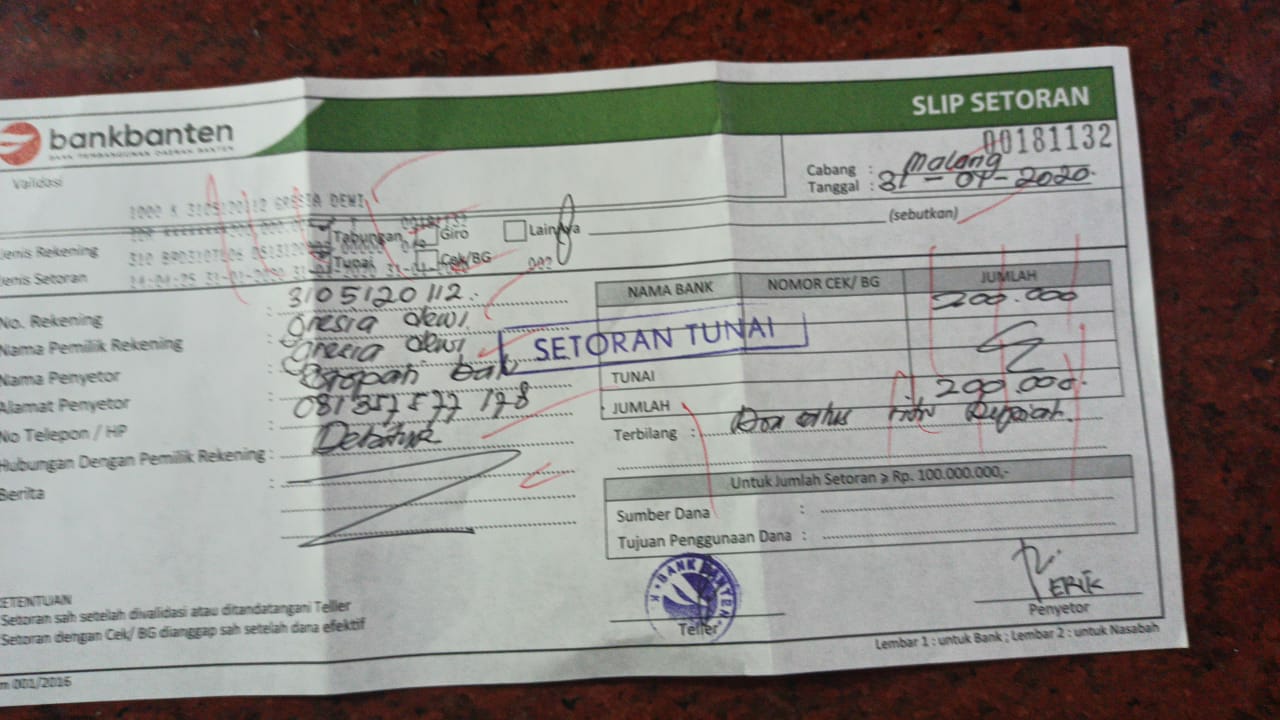 bankbanten
SLIP SETORAN
00181132
Validasi
Cabang : Malang
Tanggal : 31-07-2020
1000 K 3105120112 GRESIA DEWI
00181132
Jenis Rekening Tabungan Giro Lainnya (sebutkan)
Jenis Setoran Tunai Cek/BG
14:04:25 31-01-2020
002
No. Rekening : 3105120112
Nama Pemilik Rekening : Gresia dewi
Nama Penyetor : Gresia dewi
Alamat Penyetor :
No Telepon / HP : 081357577178
Hubungan Dengan Pemilik Rekening : Debitur
Berita :
NAMA BANK NOMOR CEK/ BG JUMLAH
200.000
SETORAN TUNAI
TUNAI
JUMLAH 200.000
Terbilang : Dua ratus ribu Rupiah
Untuk Jumlah Setoran ⩾ Rp. 100.000.000,-
Sumber Dana :
Tujuan Penggunaan Dana :
BANK BANTEN
Teller
ERIK
Penyetor
KETENTUAN
Setoran sah setelah divalidasi atau ditandatangani Teller
Setoran dengan Cek/ BG dianggap sah setelah dana efektif
Lembar 1 : untuk Bank ; Lembar 2 : untuk Nasabah
001/2016